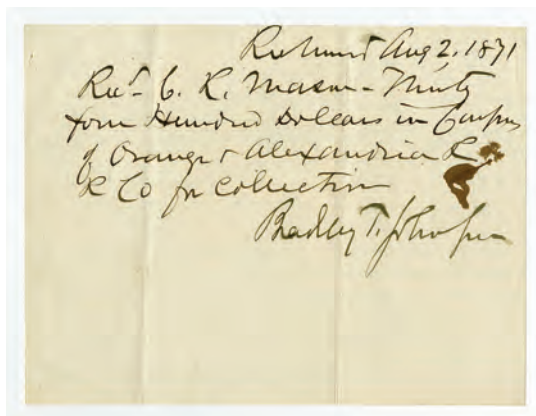 Richmond Aug 2, 1871
Recd C. R. Mason - Ninty
four Hundred Dollars in Coupons
of Orange & Alexandria R
R Co for Collection
Bradley T. Johnson